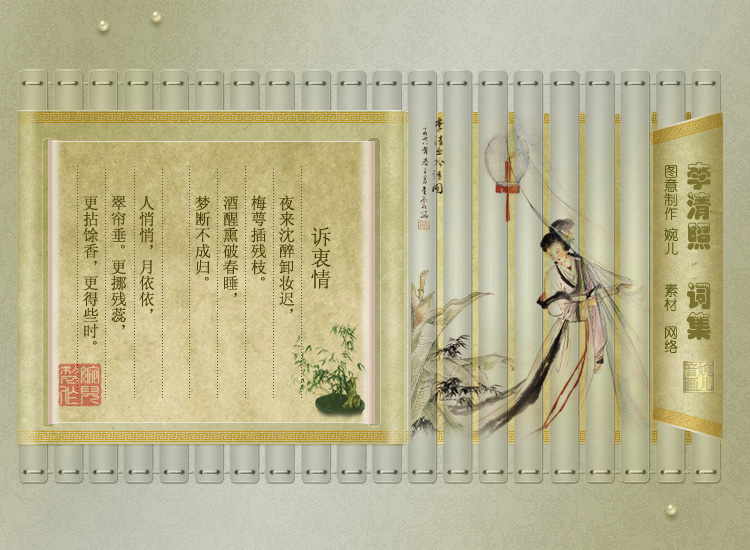 李清照 词集
图意制作 婉儿 素材 网络
诉衷情
夜来沈醉卸妆迟，
梅萼插残枝。
酒醒熏破春睡，
梦断不成归。
人悄悄，月依依，
翠帘垂。更挪残蕊，
更拈馀香，更得些时。